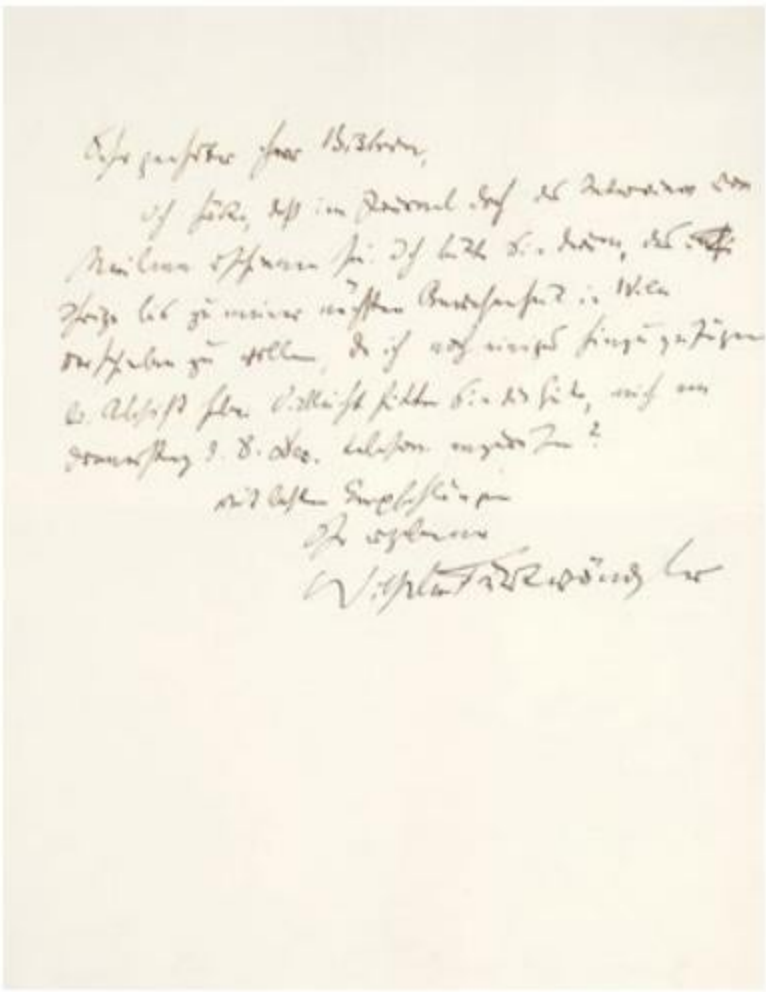 Sehr geehrter Herr
ich höre, daß im Journal doch das Interview von
sei. Ich bitte Sie darum,
bis zu meiner nächsten Anwesenheit in Wien
verschieben zu wollen, da ich noch einiges hinzuzufügen
die Absicht habe. Vielleicht hätten Sie die Güte, mich am
Donnerstag d. 8. Dez. telefon. anzurufen?
mit besten Empfehlungen
Ihr ergebener
Wilhelm Furtwängler